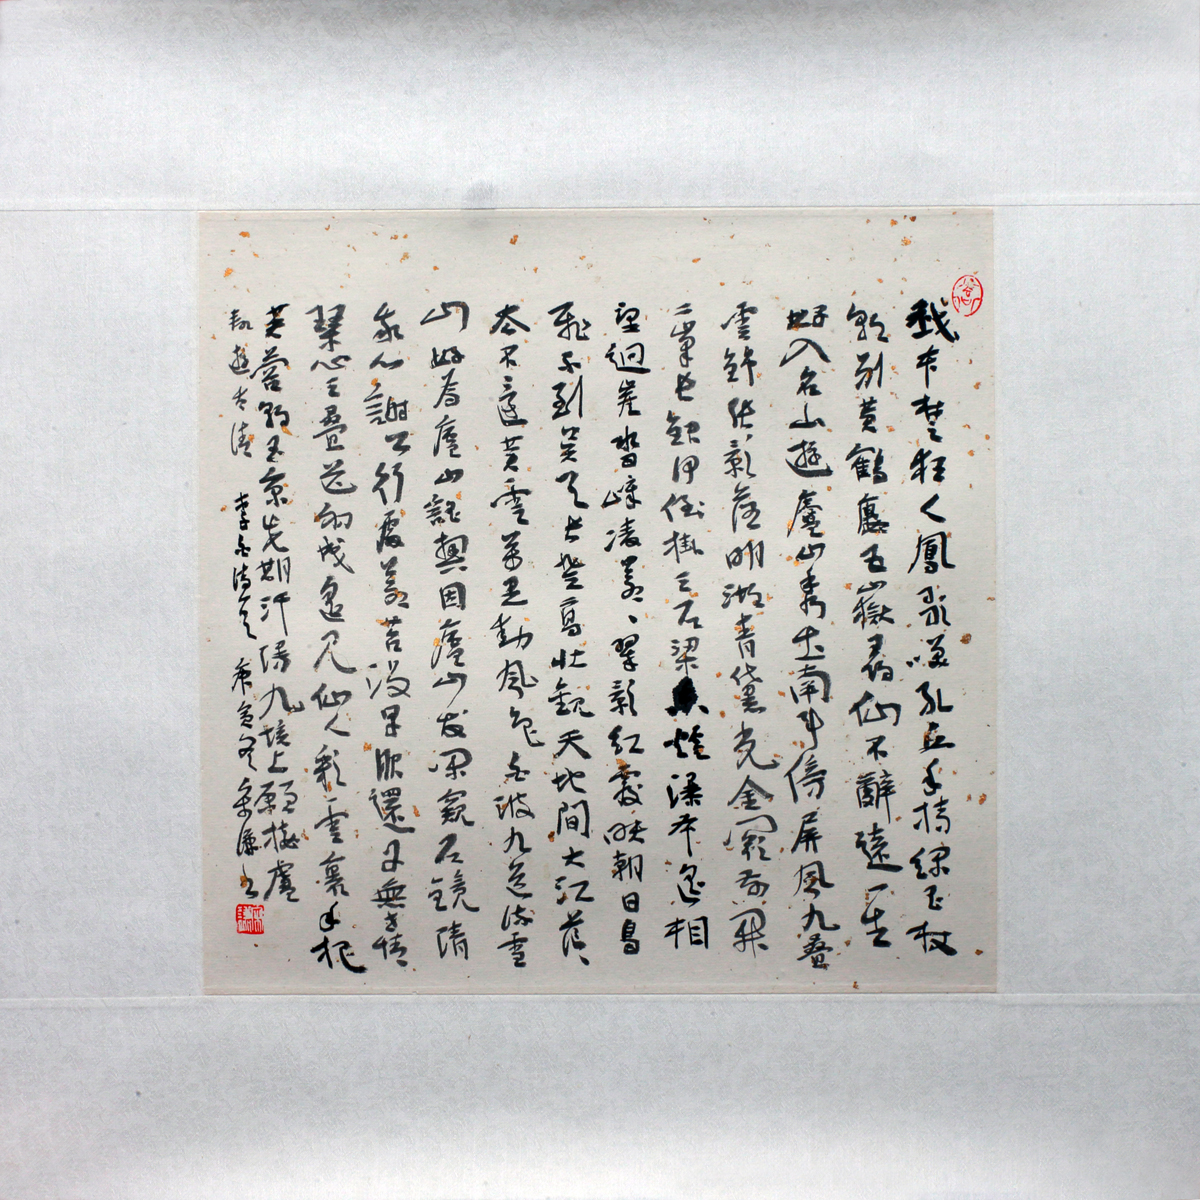 我本楚狂人鳳歌笑孔丘手持綠玉杖
朝別黃鶴樓五嶽尋仙不辭遠一生
好入名山遊廬山秀出南斗傍屏風九疊
雲錦張影落明湖青黛光金闕前開
二峯長銀河倒掛三石梁香爐瀑布遙相
望迴崖沓嶂凌蒼蒼翠影紅霞映朝日鳥
飛不到吳天長登高壯觀天地間大江茫茫
去不還黃雲萬里動風色白波九道流雪
山好為廬山謠興因廬山發閑窺石鏡清
我心謝公行處蒼苔沒早服還丹無世情
琴心三疊道初成遙見仙人彩雲裏手把
芙蓉朝玉京先期汗漫九垓上願接盧
敖遊太清 李白詩 庚寅冬